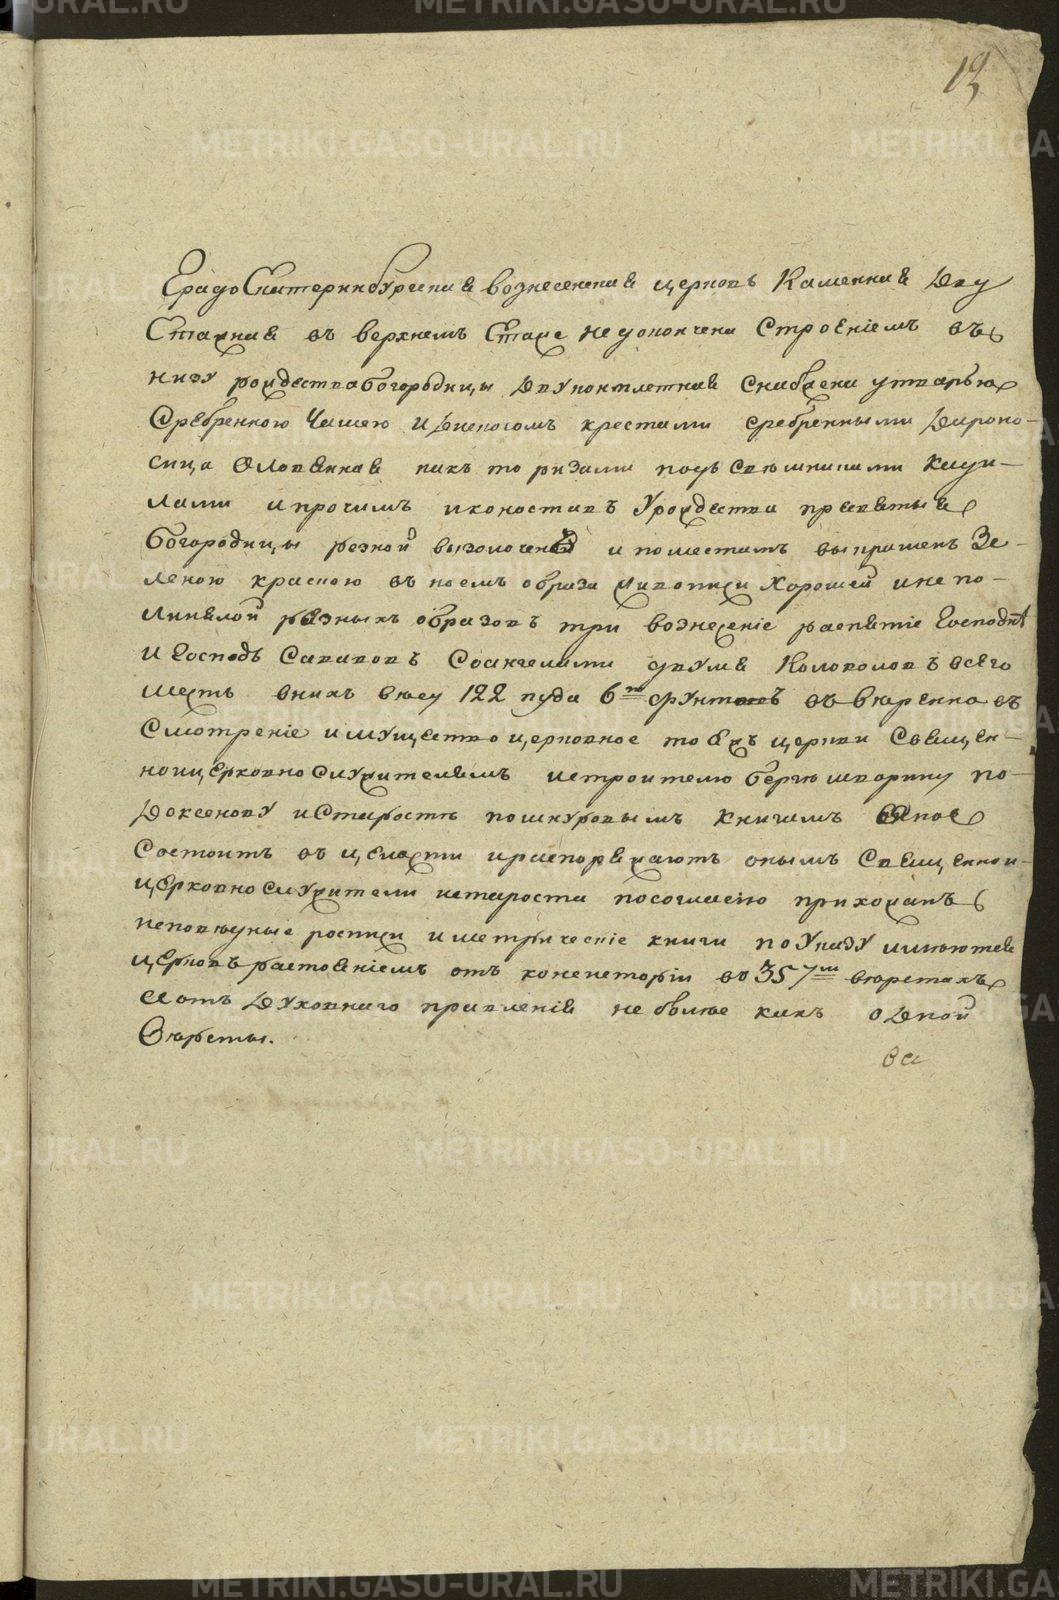 METRIKI.GASO-URAL.RU
19
Градо Екатеринбургская вознесенская церковь Каменная Дву
Етажная въ верхнемъ Етаже недокончена Строениемъ въ
низу рождества богородицы Двукомплетная Снабжена утварью
Сребренною Чашею и Дискосомъ крестами сребренными Дароно-
сица Оловянная какъ то ризами подъ Свѣшниками Кади-
лами и прочимъ иконостасъ У рождества пресвятыя
богородицы резной вызолоченъ и поместамъ выкрашенъ Зе-
леною краскою въ коемъ образа живописи Хорошей и не по-
линялой резныхъ образовъ три вознесение распятие Господне
И Господь Саваофъ Соангелами двумя Колоколовъ всего
шесть вних весу 122 пуда 6ть фунтовъ въ верена въ
Смотрение имущество церковное тоя жъ церкви Священ-
ноицерковно Служителямъ и строителю бергшварину по-
Доксенову и Старосте пошнуровымъ Книгамъ кое
Состоитъ в целости и распоряжаютъ онымъ Священнои-
церковно служители и староста посогласию прихожанъ
исповедные росписи и метрические книги по Указу имеютея
церковь растоянием отъ консистории во 357ми верстахъ
а отъ Духовнаго правления не более какъ одной
Версты.
ва
METRIKI.GASO-URAL.RU